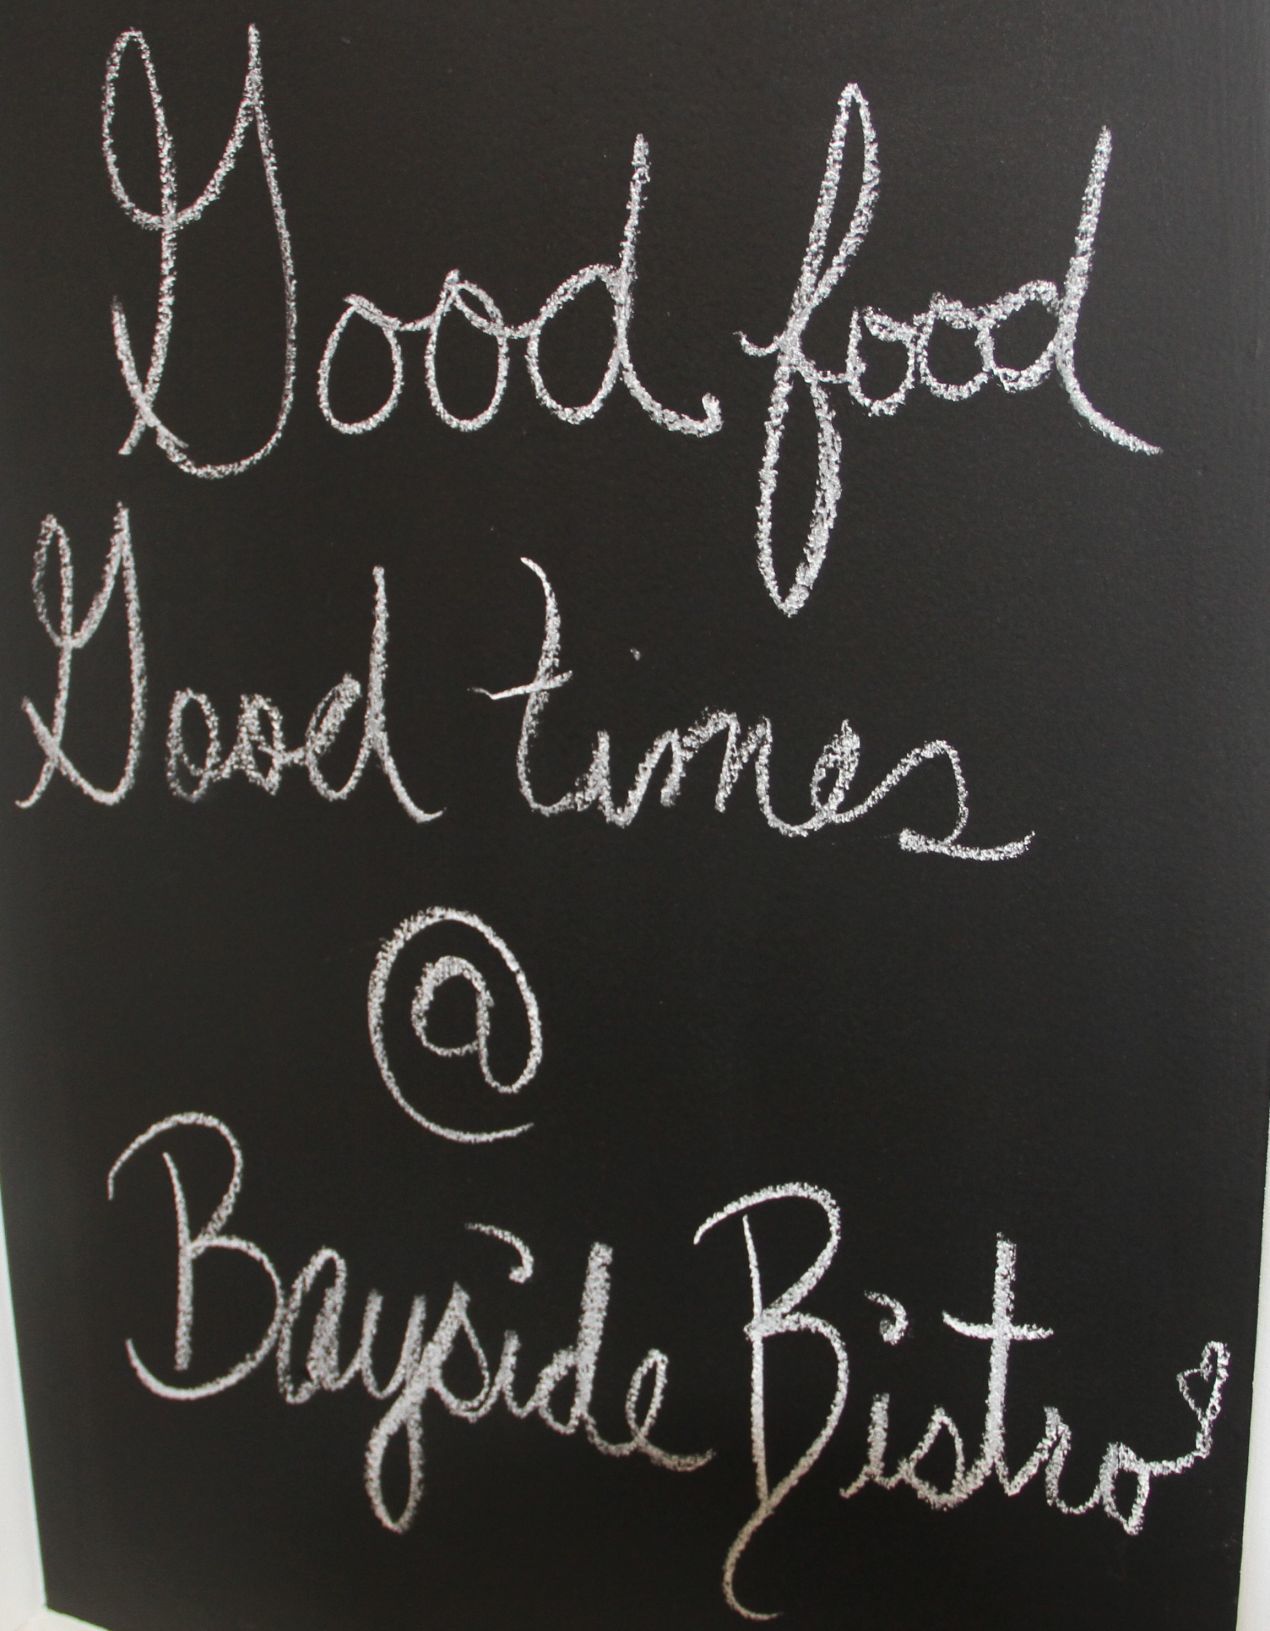 Good food
Good times
@
Bayside Bistro